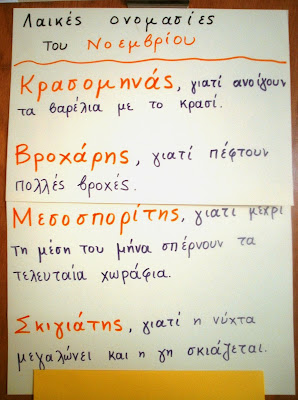 Λαϊκές ονομασίες
του Νοεμβρίου
Κρασομηνάς, γιατί ανοίγουν
τα βαρέλια με το κρασί.
Βροχάρης, γιατί πέφτουν
πολλές βροχές.
Μεσοσπορίτης, γιατί μέχρι
τη μέση του μήνα σπέρνουν τα
τελευταία χωράφια.
Σκιγιάτης, γιατί η νύχτα
μεγαλώνει και η γη σκιάζεται.